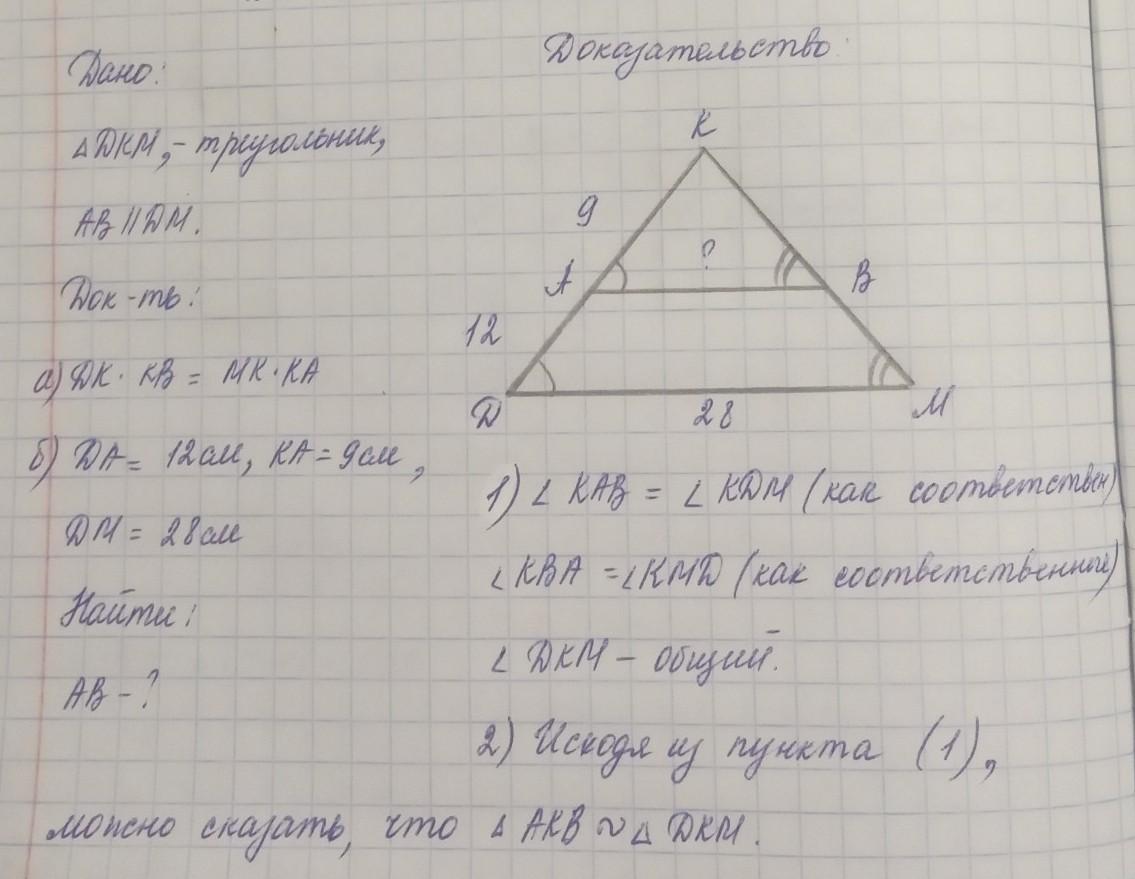 Доказательство:
Дано:
△DKM, - треугольник,
AB || DM.
Док-ть:
а) DK · KB = MK · KA
б) DA = 12см, KA = 9см,
DM = 28см
Найти:
AB - ?
K
9
?
A
B
12
D
28
M
1) ∠ KAB = ∠ KDM (как соответствен)
∠ KBA = ∠ KMD (как соответственные)
∠ DKM - общий.
2) Исходя из пункта (1),
можно сказать, что △ AKB ~ △ DKM.